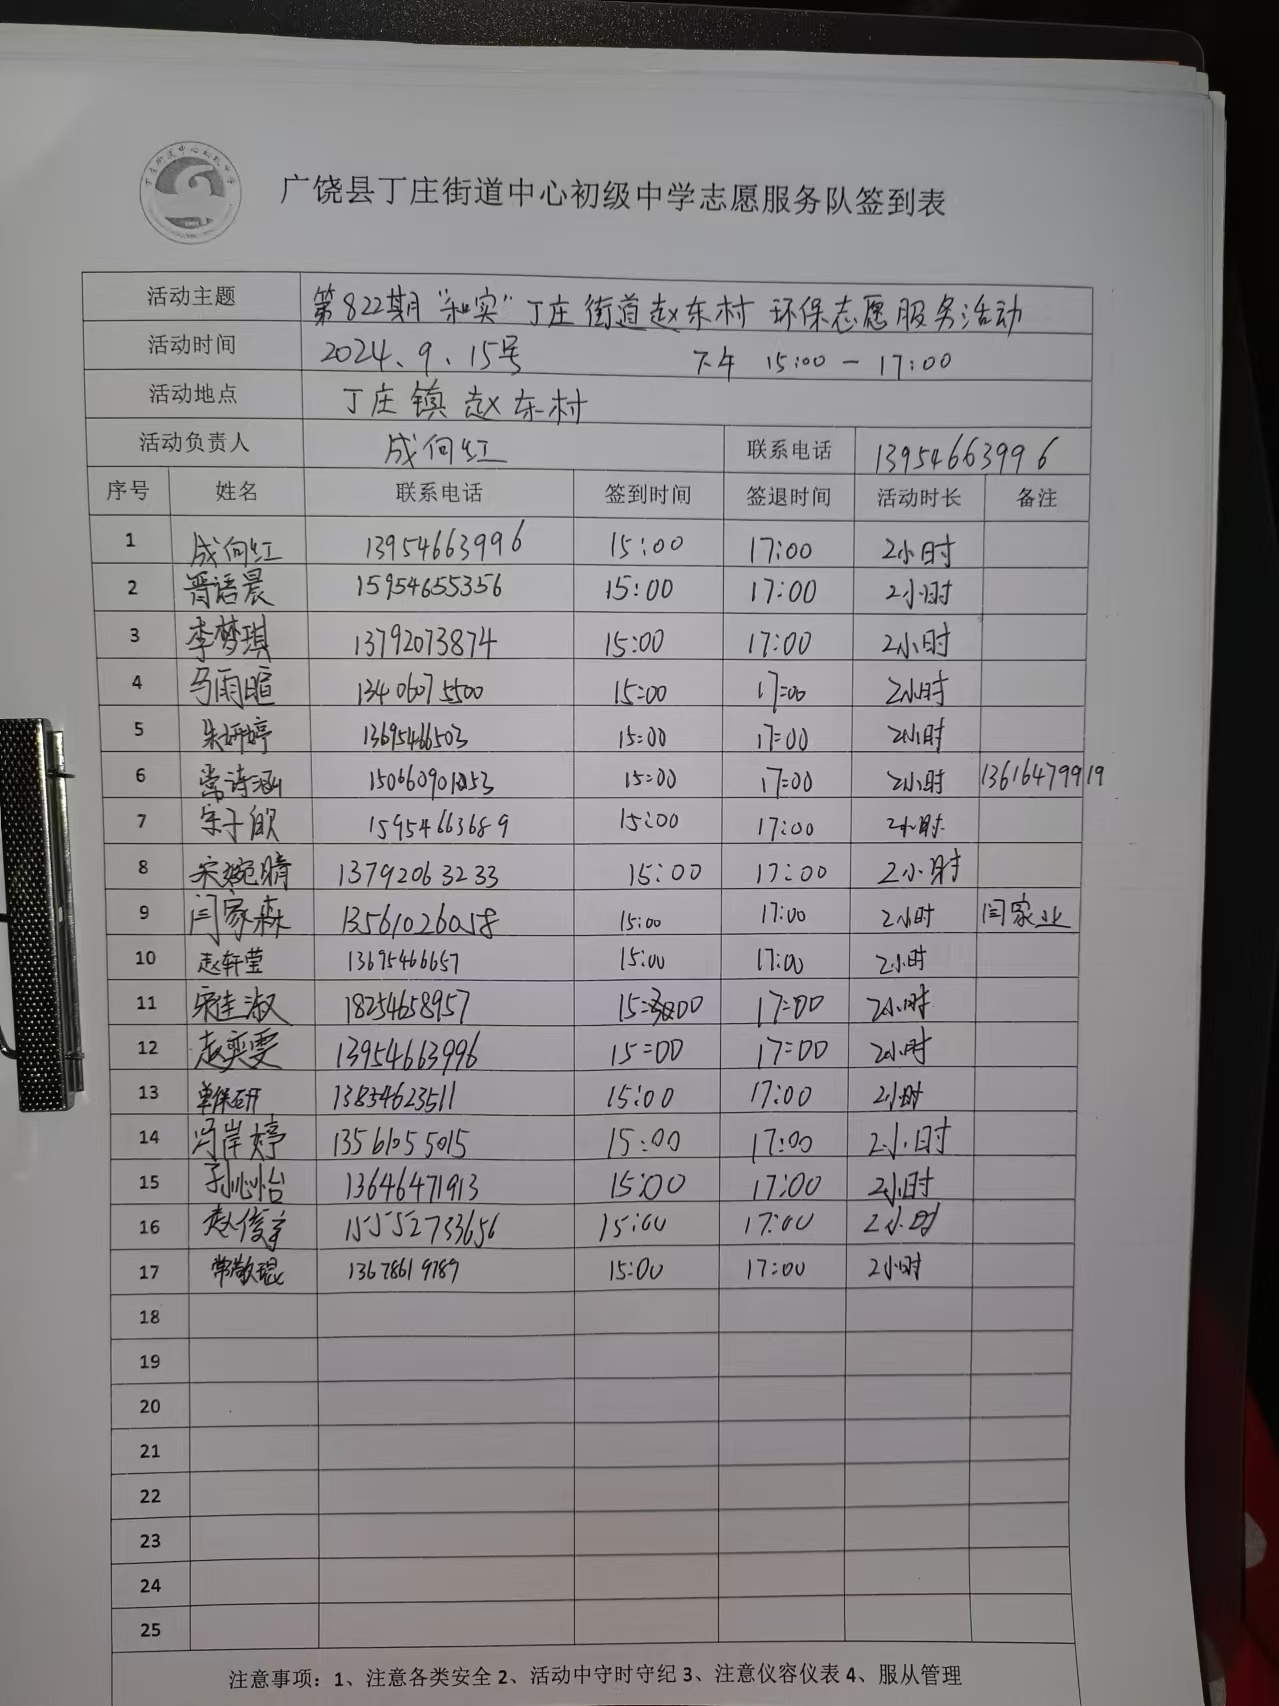 广饶县丁庄街道中心初级中学志愿服务队签到表
活动主题 第822期“和实”丁庄街道赵东村 环保志愿服务活动
活动时间 2024、9、15号 下午 15:00 — 17:00
活动地点 丁庄镇赵东村
活动负责人 成向红 联系电话 13954663996
序号 姓名 联系电话 签到时间 签退时间 活动时长 备注
1 成向红 13954663996 15:00 17:00 2小时
2 胥语晨 15954655356 15:00 17:00 2小时
3 李梦琪 13792073874 15:00 17:00 2小时
4 马雨暄 13406075500 15:00 17:00 2小时
5 朱妍婷 13695466503 15:00 17:00 2小时
6 常诗涵 15:00 17:00 2小时 13616479919
7 宋子欣 15954663689 15:00 17:00 2小时
8 宋婉晴 13792063233 15:00 17:00 2小时
9 闫家森 13561026058 15:00 17:00 2小时 闫家业
10 赵轩莹 13695466657 15:00 17:00 2小时
11 宋佳淑 18254658957 15:00 17:00 2小时
12 赵奕雯 13954663996 15:00 17:00 2小时
13 13854623511 15:00 17:00 2小时
14 冯岸婷 13561055015 15:00 17:00 2小时
15 孙心怡 13646471913 15:00 17:00 2小时
16 赵俊 15552733656 15:00 17:00 2小时
17 常敬琨 13678619789 15:00 17:00 2小时
18
19
20
21
22
23
24
25
注意事项：1、注意各类安全 2、活动中守时守纪 3、注意仪容仪表 4、服从管理